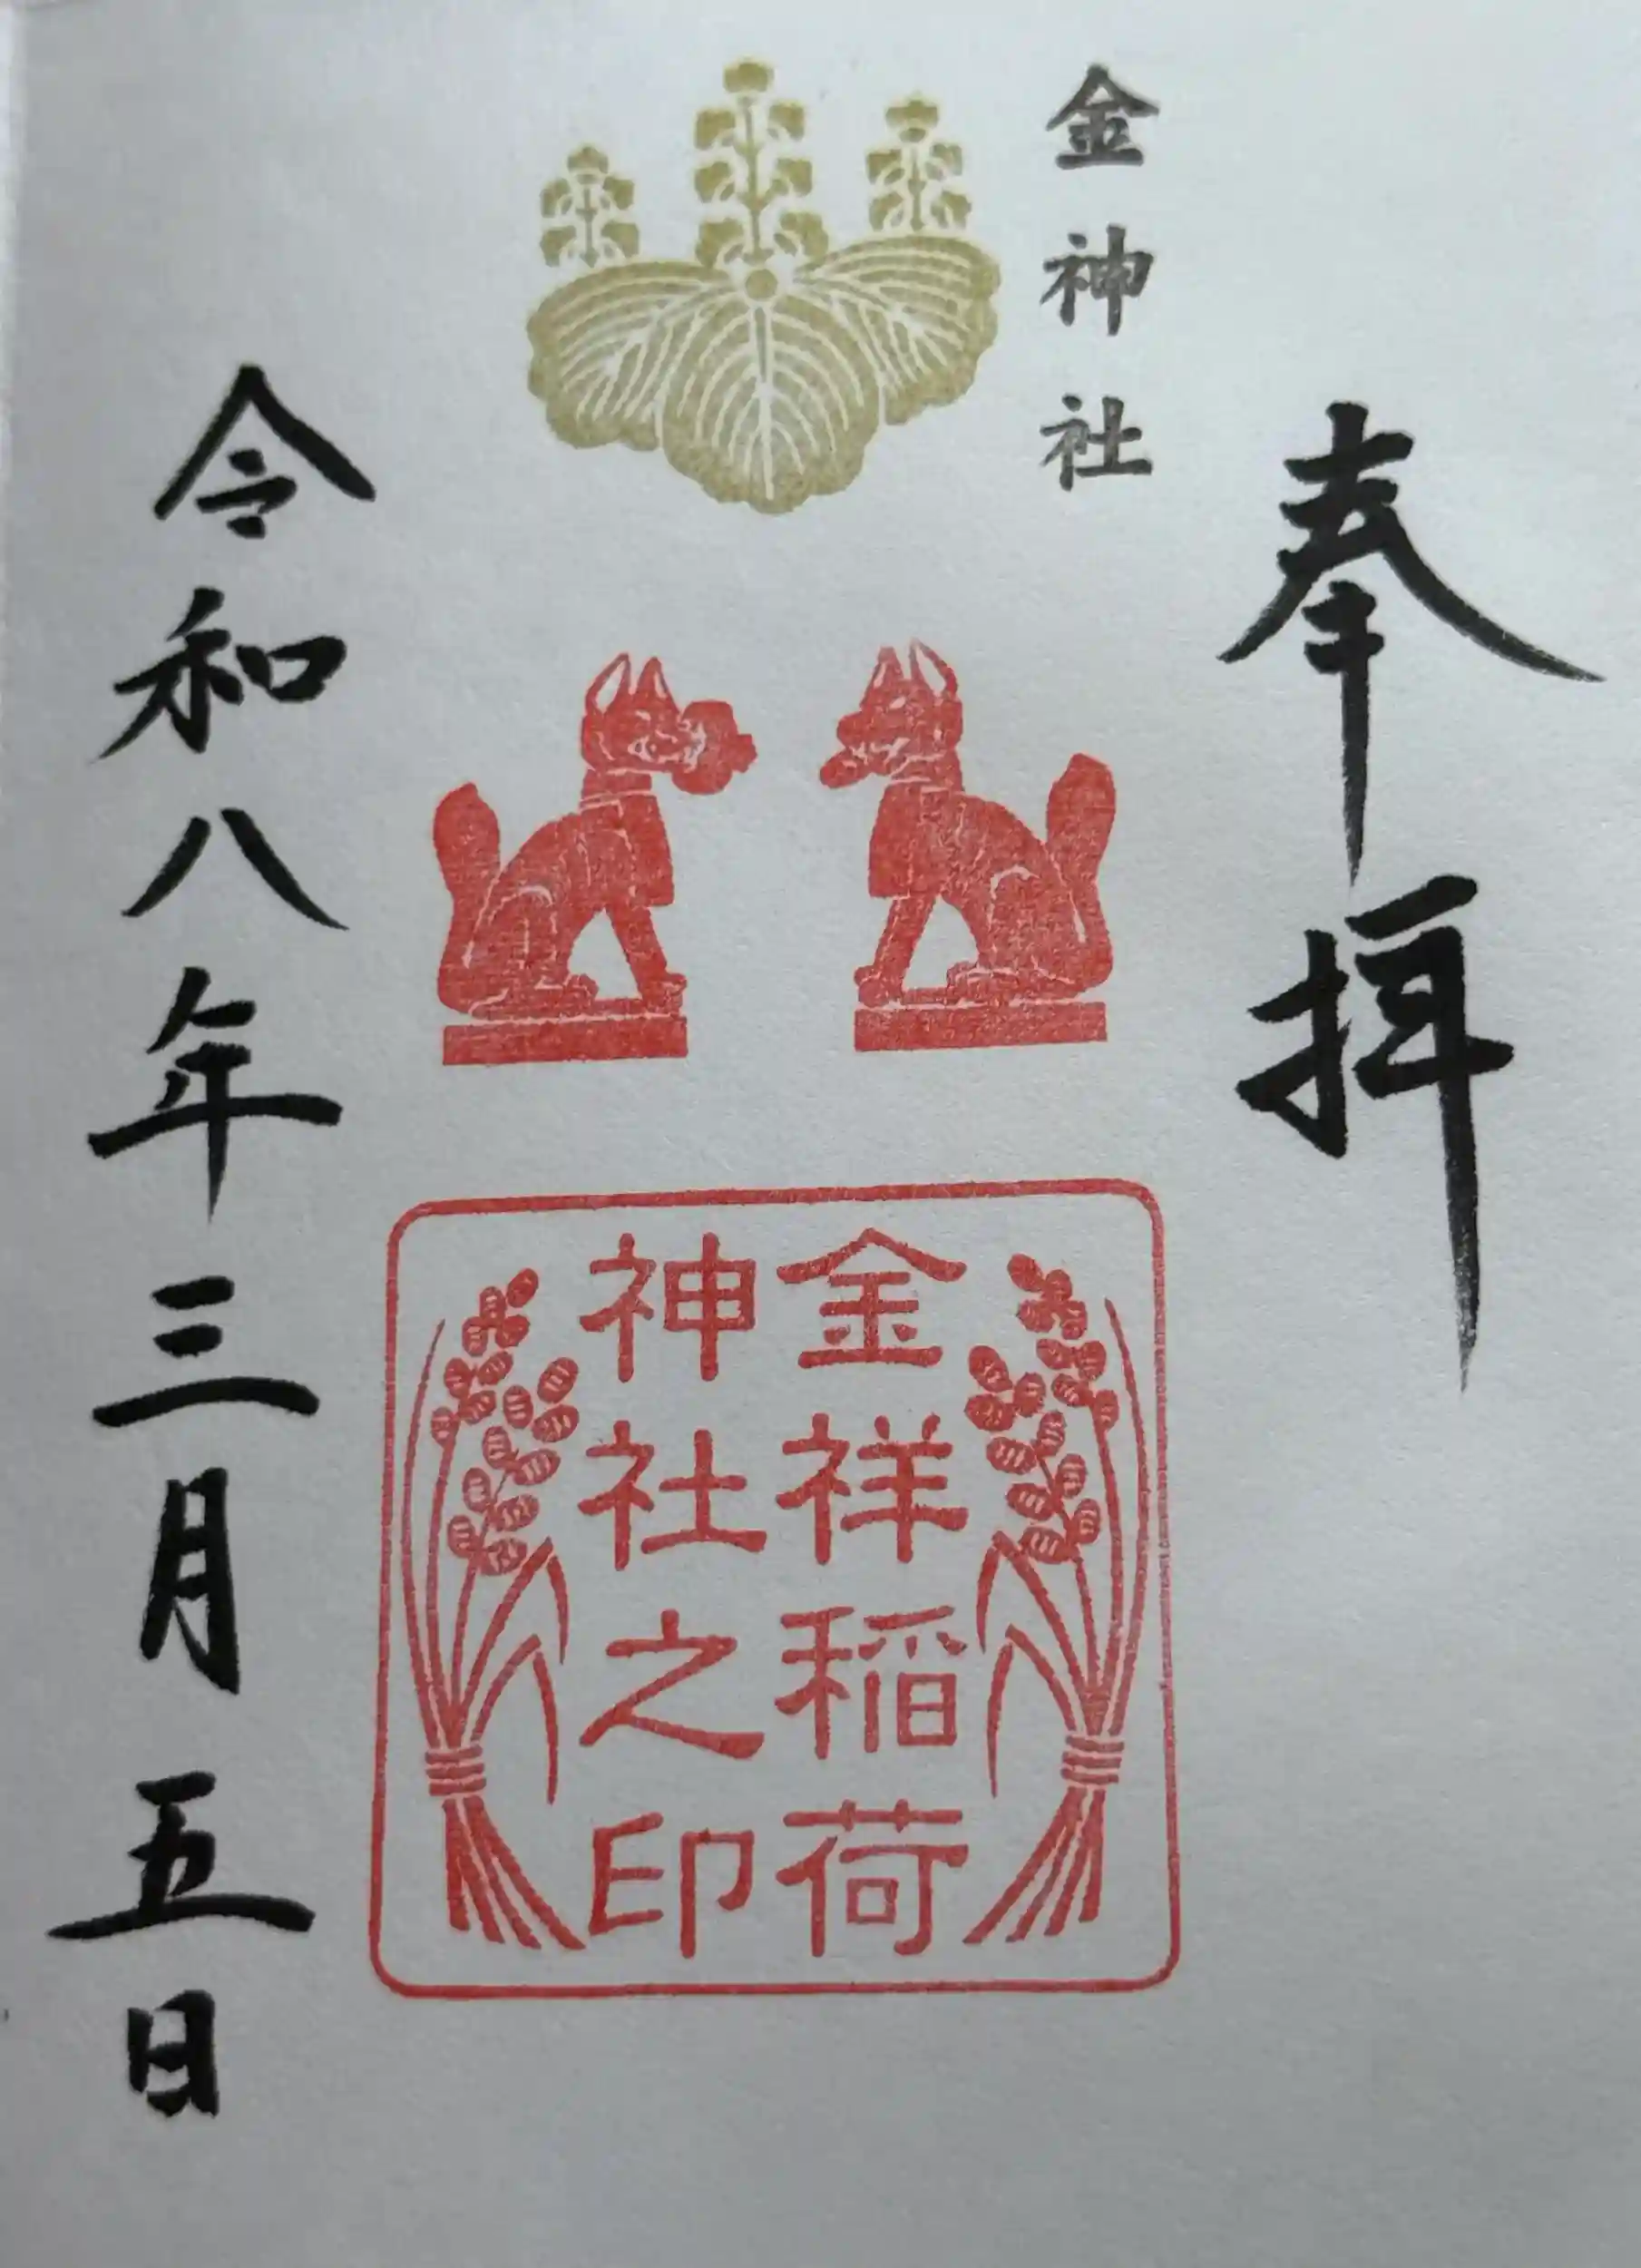 奉拝
金神社
金祥稲荷
神社之印
令和八年三月五日